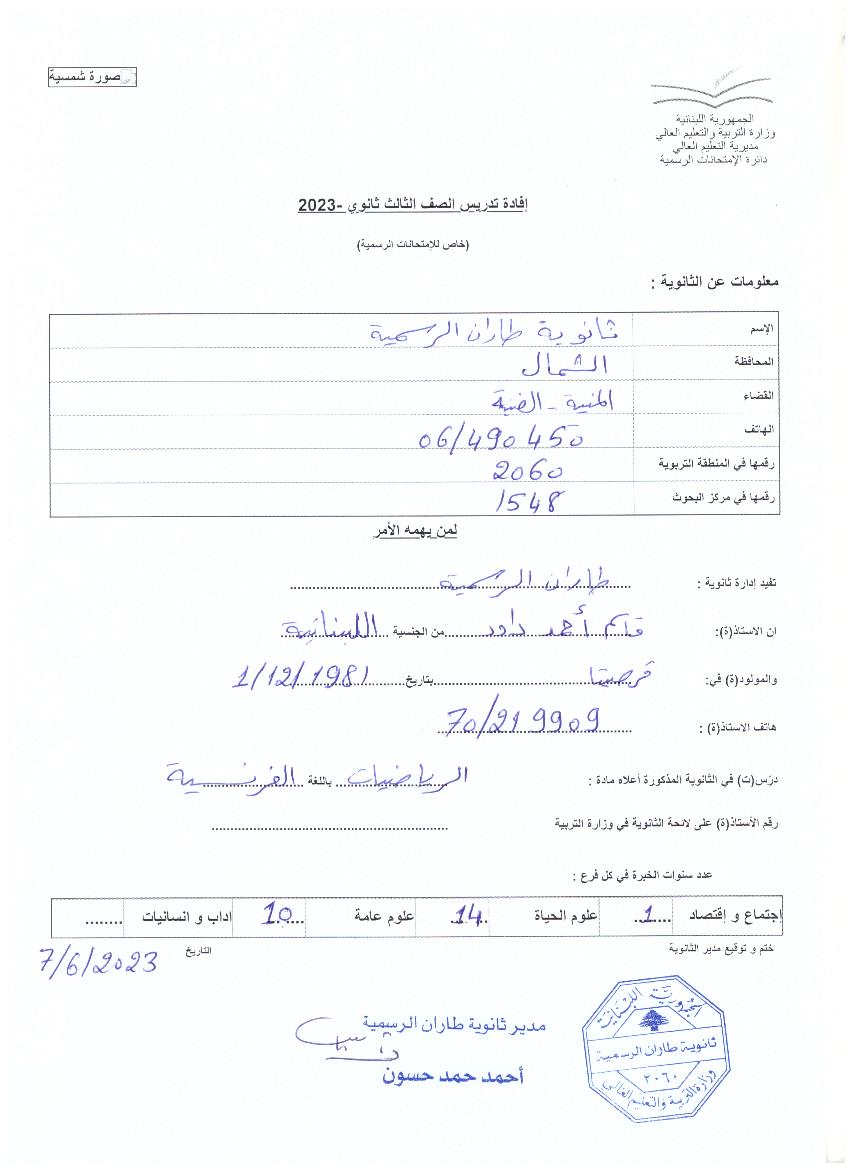 صورة شمسية
الجمهورية اللبنانية
وزارة التربية والتعليم العالي
مديرية التعليم العالي
دائرة الإمتحانات الرسمية
إفادة تدريس الصف الثالث ثانوي -2023
(خاص للإمتحانات الرسمية)
معلومات عن الثانوية :
الإسم ثانوية طاران الرسمية
المحافظة الشمال
القضاء المنية - الضنية
الهاتف 06/490450
رقمها في المنطقة التربوية 2060
رقمها في مركز البحوث 1548
لمن يهمه الأمر
تفيد إدارة ثانوية : طاران الرسمية
ان الاستاذ(ة): قاسم أحمد داود من الجنسية اللبنانية
والمولود(ة) في: قرصيتا بتاريخ 1/12/1981
هاتف الاستاذ(ة) : 70/219909
درّس(ت) في الثانوية المذكورة أعلاه مادة : الرياضيات باللغة الفرنسية
رقم الأستاذ(ة) على لائحة الثانوية في وزارة التربية ........
عدد سنوات الخبرة في كل فرع :
إجتماع و إقتصاد 1 علوم الحياة 14 علوم عامة 10 اداب و انسانيات ........
ختم و توقيع مدير الثانوية التاريخ 7/6/2023
مدير ثانوية طاران الرسمية
أحمد حمد حسون
الجمهورية اللبنانية
ثانوية طاران الرسمية
٢٠٦٠
وزارة التربية والتعليم العالي